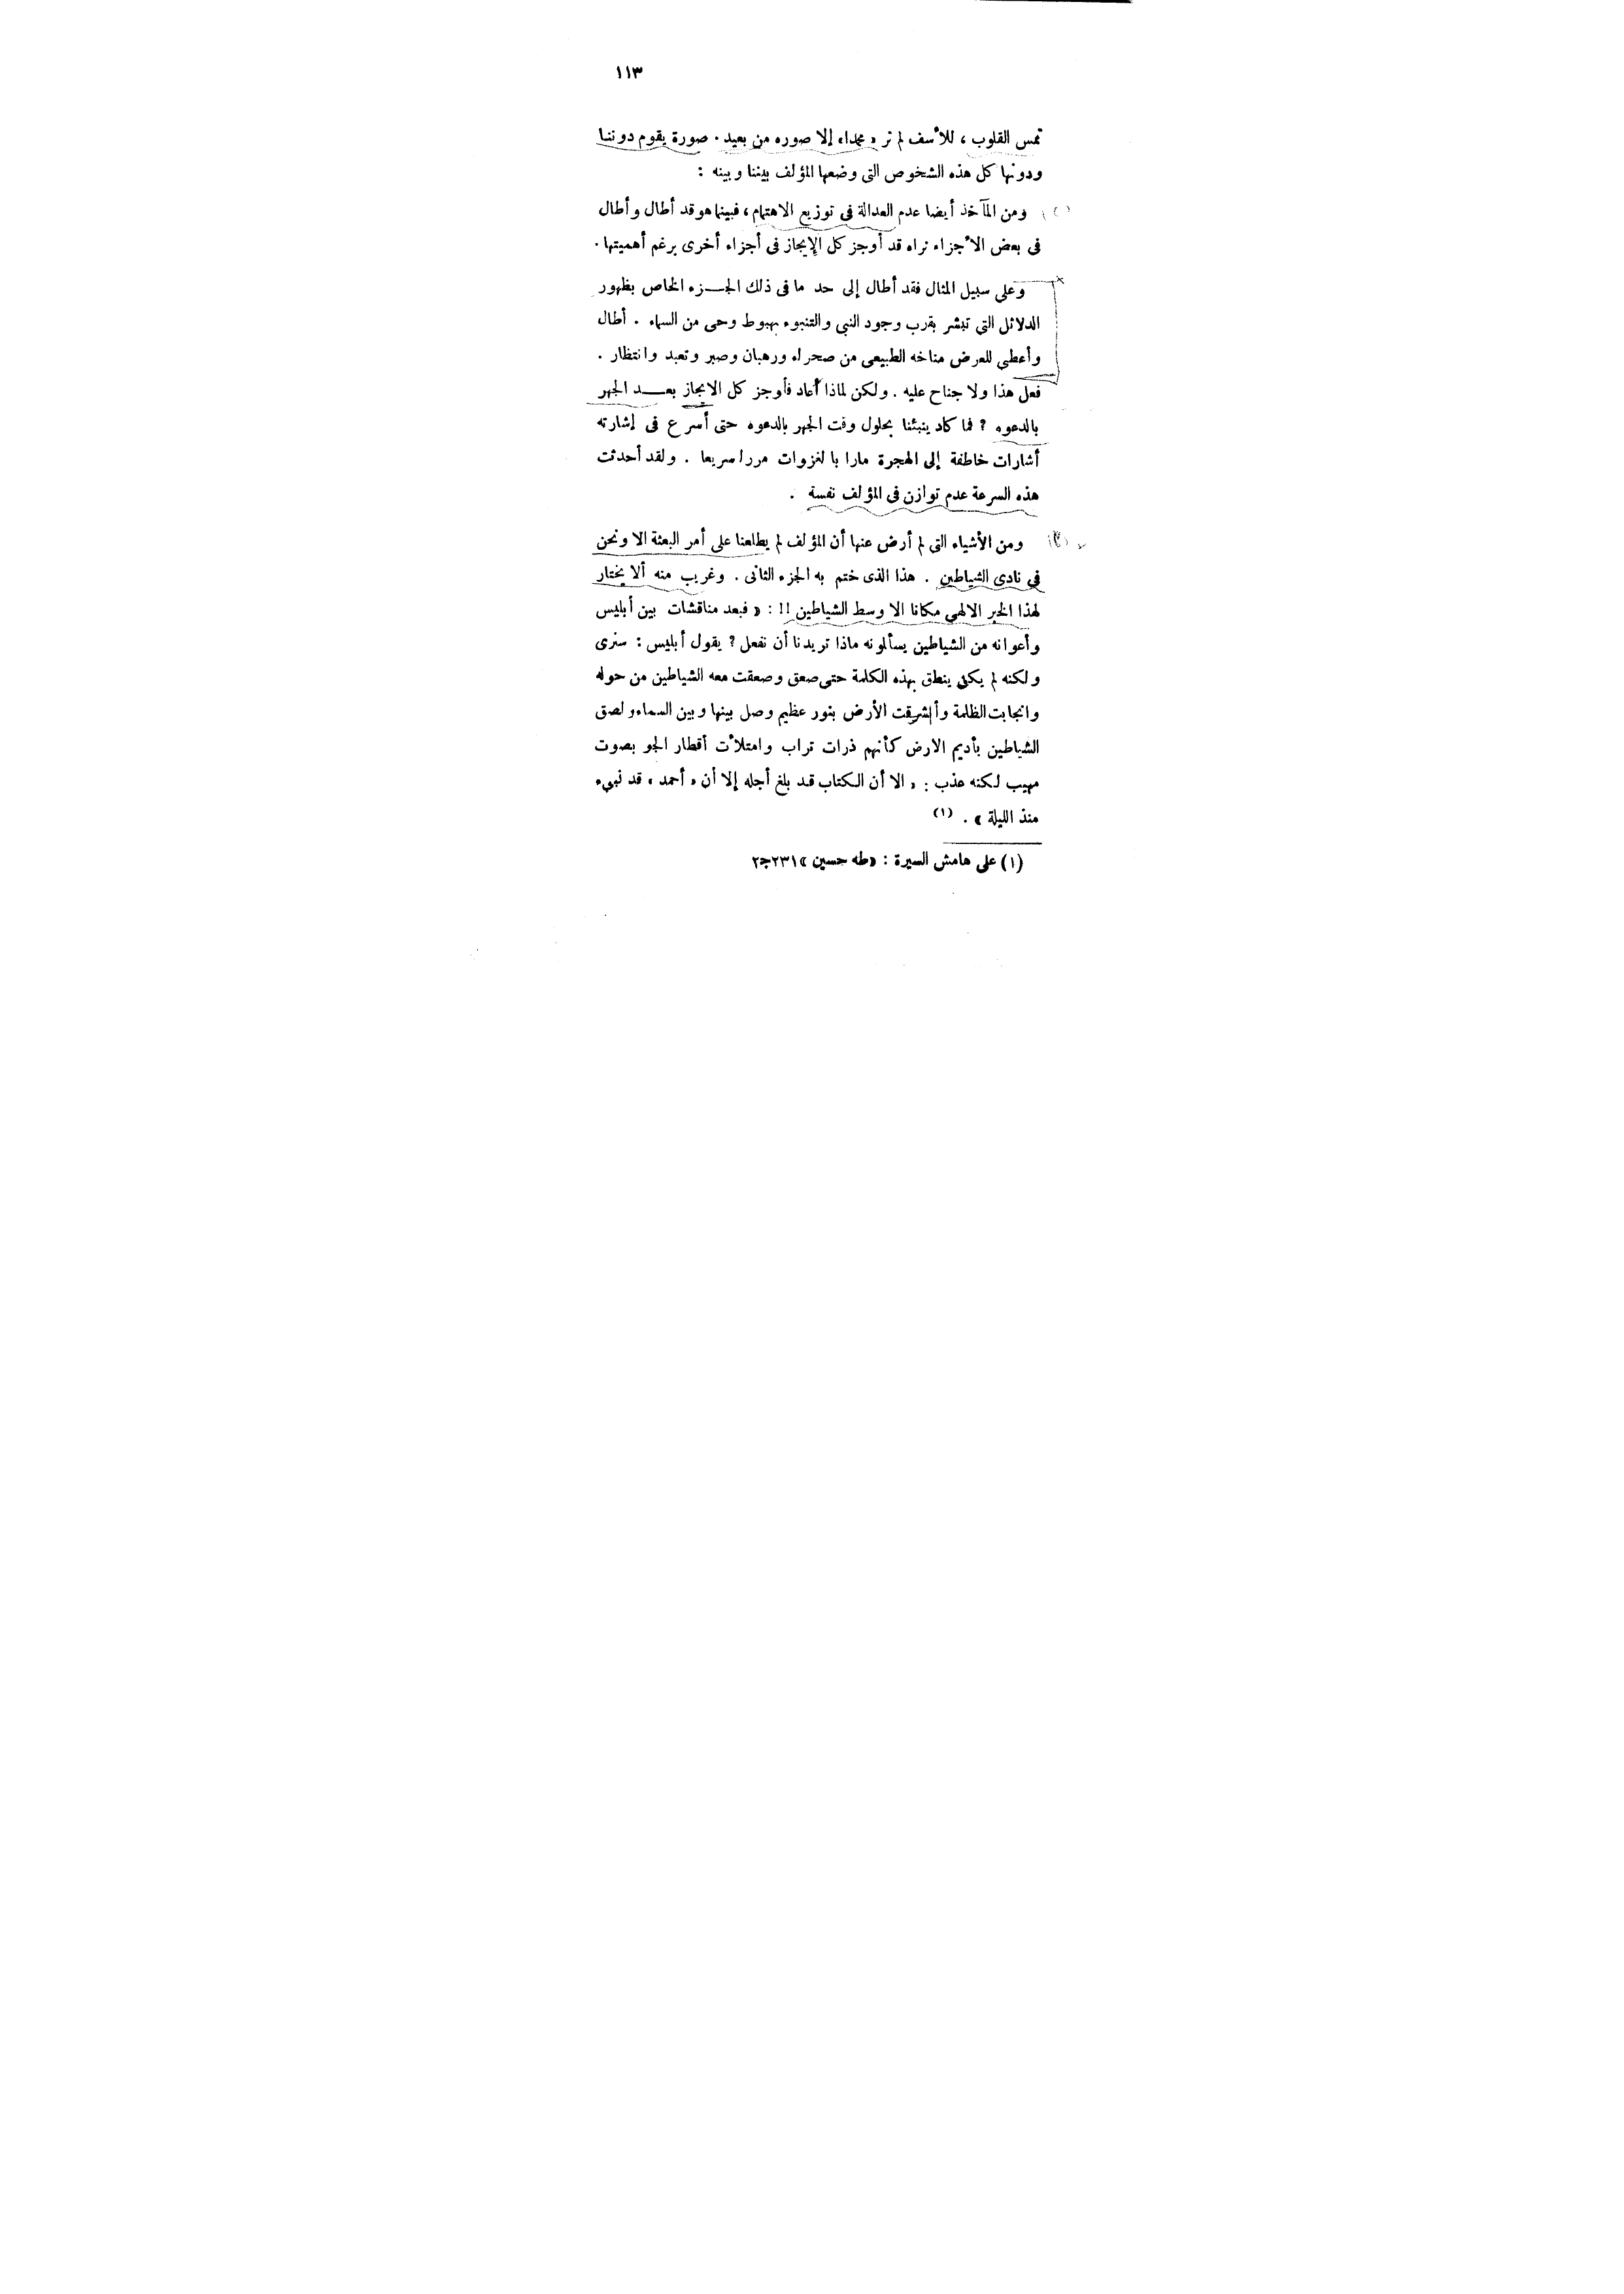 ١١٣
تمس القلوب ، للأسف لم نر « محمدا » إلا صوره من بعيد . صورة يقوم دوننا
ودونها كل هذه الشخوص التى وضعها المؤلف بيننا وبينه :
ومن المآخذ أيضا عدم العدالة فى توزيع الاهتمام ، فبينما هو قد أطال وأطال
فى بعض الأجزاء نراه قد أوجز كل الإيجاز فى أجزاء أخرى برغم أهميتها .
وعلى سبيل المثال فقد أطال إلى حد ما فى ذلك الجزء الخاص بظهور
الدلائل التي تبشر بقرب وجود النبى والتنبوء بهبوط وحى من السماء . أطال
وأعطي للعرض مناخه الطبيعى من صحراء ورهبان وصبر وتعبد وانتظار .
فعل هذا ولا جناح عليه . ولكن لماذا أعاد فأوجز كل الايجاز بعد الجهر
بالدعوه ? فما كاد ينبئنا بحلول وقت الجهر بالدعوه حتى أسرع فى إشارته
أشارات خاطفة إلى الهجرة مارا بالغزوات مررا سريعا . ولقد أحدثت
هذه السرعة عدم توازن فى المؤلف نفسة .
ومن الأشياء التى لم أرض عنها أن المؤلف لم يطلعنا على أمر البعثة الا ونحن
في نادى الشياطين . هذا الذى ختم به الجزء الثانى . وغريب منه ألا يختار
لهذا الخبر الالهي مكانا الا وسط الشياطين !! : « فبعد مناقشات بين أبليس
وأعوانه من الشياطين يسألونه ماذا تريدنا أن نفعل ? يقول أبليس : سنرى
ولكنه لم يكن ينطق بهذه الكلمة حتى صعق وصعقت معه الشياطين من حوله
وانجابت الظلمة وأشرقت الأرض بنور عظيم وصل بينها وبين السماء ولصق
الشياطين بأديم الارض كأنهم ذرات تراب وامتلأت أقطار الجو بصوت
مهيب لكنه عذب : « الا أن الكتاب قد بلغ أجله إلا أن « أحمد » قد نبىء
منذ الليلة » . (١)
(١) على هامش السيرة : « طه حسين » ٢٣١ ج٢